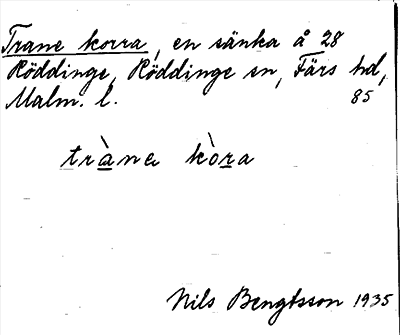 Trane korra, en sänka å 28
Röddinge, Röddinge sn, Färs hd,
Malm. l. 85
tràna kòra
Nils Bengtsson 1935